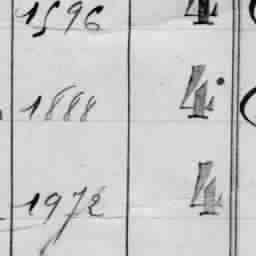 1596 4
1888 4
1972 4